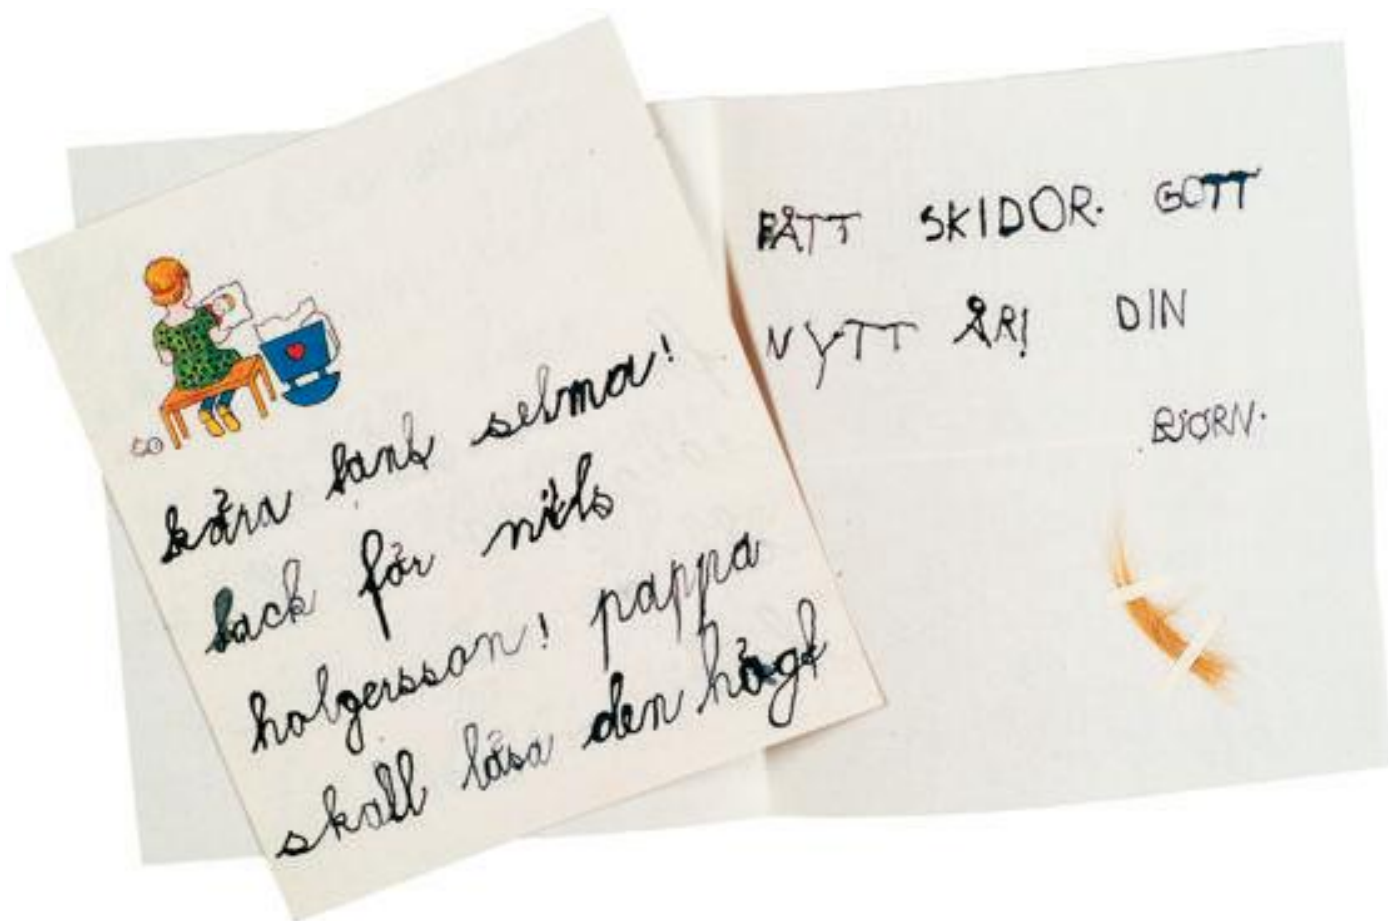 kära tant selma!
tack för nils
holgersson! pappa
skall läsa den högt
FÅTT SKIDOR. GOTT
NYTT ÅR! DIN
BJÖRN.